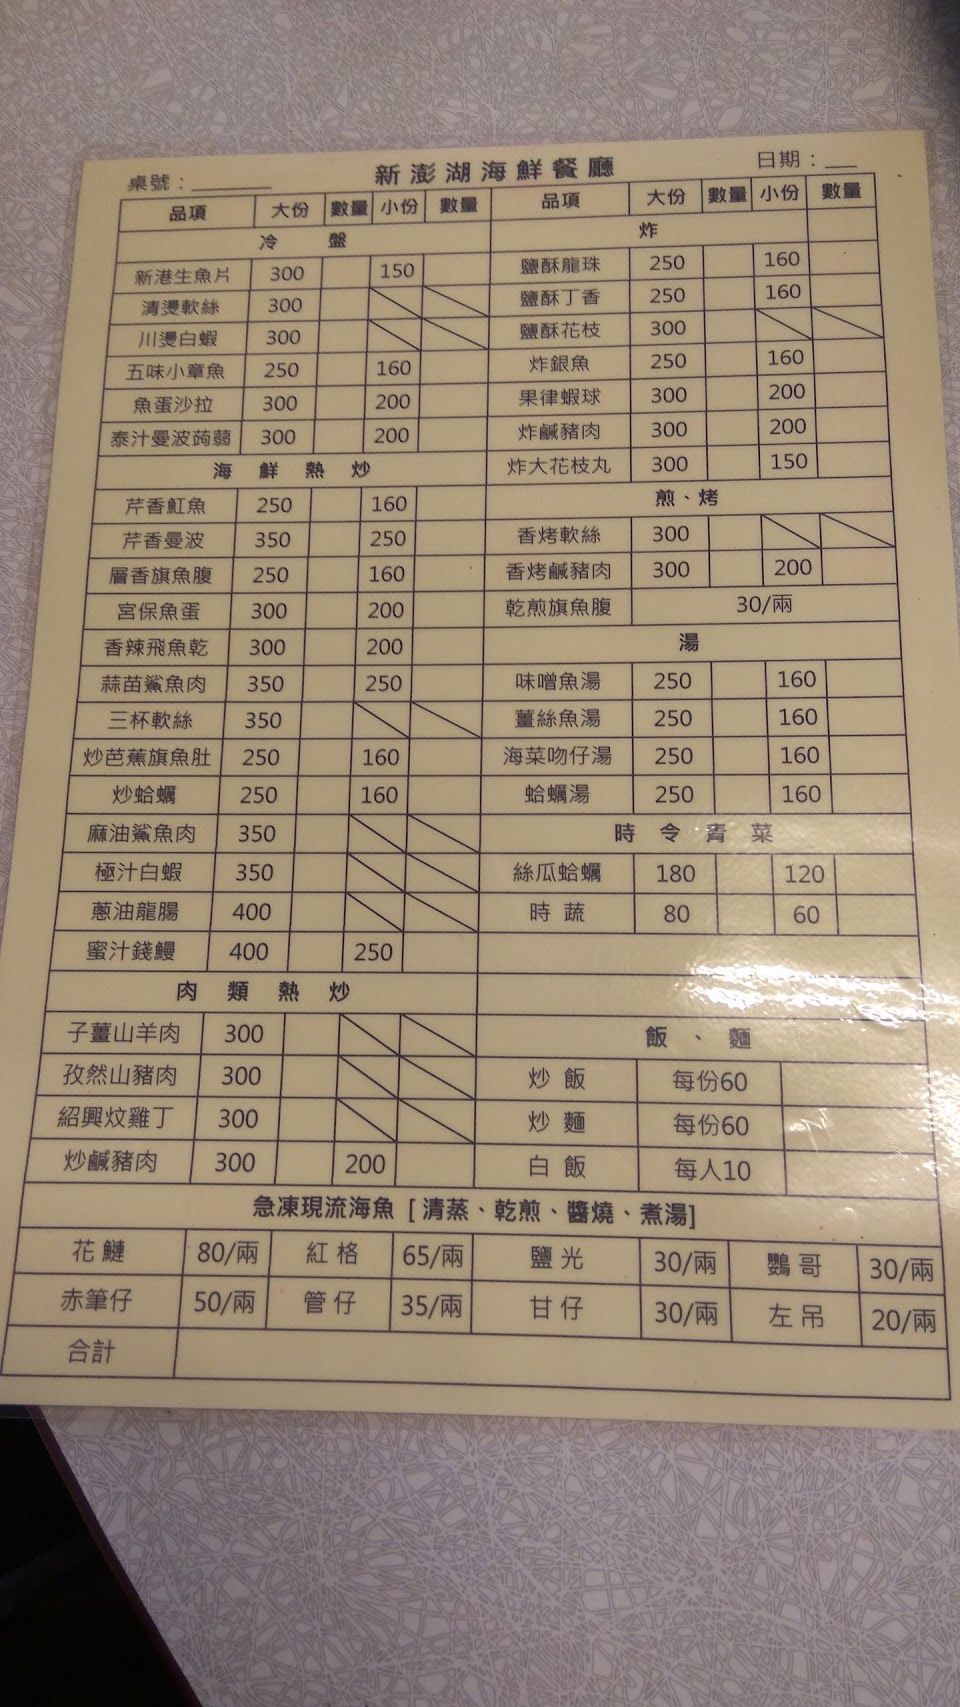 桌號：
新澎湖海鮮餐廳
日期：
品項 大份 數量 小份 數量
冷 盤
新港生魚片 300 150
清燙軟絲 300
川燙白蝦 300
五味小章魚 250 160
魚蛋沙拉 300 200
泰汁曼波蒟蒻 300 200
海 鮮 熱 炒
芹香魟魚 250 160
芹香曼波 350 250
層香旗魚腹 250 160
宮保魚蛋 300 200
香辣飛魚乾 300 200
蒜苗鯊魚肉 350 250
三杯軟絲 350
炒芭蕉旗魚肚 250 160
炒蛤蠣 250 160
麻油鯊魚肉 350
極汁白蝦 350
蔥油龍腸 400
蜜汁錢鰻 400 250
肉 類 熱 炒
子薑山羊肉 300
孜然山豬肉 300
紹興炆雞丁 300
炒鹹豬肉 300 200
品項 大份 數量 小份 數量
炸
鹽酥龍珠 250 160
鹽酥丁香 250 160
鹽酥花枝 300
炸銀魚 250 160
果律蝦球 300 200
炸鹹豬肉 300 200
炸大花枝丸 300 150
煎、烤
香烤軟絲 300
香烤鹹豬肉 300 200
乾煎旗魚腹 30/兩
湯
味噌魚湯 250 160
薑絲魚湯 250 160
海菜吻仔湯 250 160
蛤蠣湯 250 160
時 令 青 菜
絲瓜蛤蠣 180 120
時 蔬 80 60
飯 、 麵
炒 飯 每份60
炒 麵 每份60
白 飯 每人10
急凍現流海魚 [清蒸、乾煎、醬燒、煮湯]
花 鰱 80/兩 紅 格 65/兩 鹽 光 30/兩 鸚 哥 30/兩
赤筆仔 50/兩 管 仔 35/兩 甘 仔 30/兩 左 吊 20/兩
合計